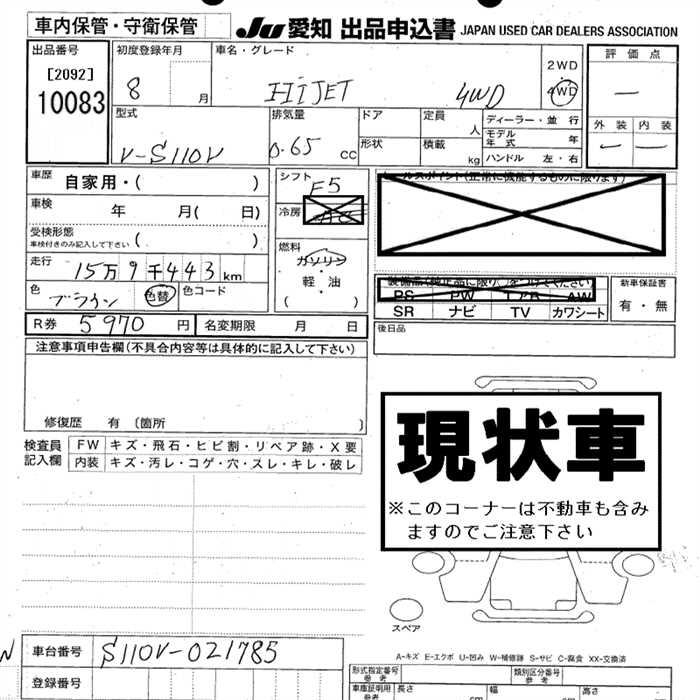 車内保管・守衛保管
JU 愛知 出品申込書 JAPAN USED CAR DEALERS ASSOCIATION
出品番号 初度登録年月 車名・グレード 評価点
[2092] 10083
8 月 HIJET 4WD 2WD 4WD —
型式 排気量 ドア 定員 人 ディーラー・並行 外装 内装
V-S110V 0.65 cc 形状 積載 kg モデル年式 年 — —
ハンドル 左・右
車歴 自家用・( ) シフト F5
車検 年 月( 日) 冷房 AC
受検形態 車検付きのみ記入して下さい ( ) 燃料 ガソリン
走行 15万9千443km 軽・油
色 ブラウン 色替 色コード ( )
セールスポイント(正常に機能するものに限ります)
装備品(純正品に限り○をつけてください) 新車保証書
PS PW エアB AW 有・無
SR ナビ TV カワシート
R券 5970円 名変期限 月 日 後日品
注意事項申告欄(不具合内容等は具体的に記入して下さい)
修復歴 有 〔箇所 〕
検査員記入欄 FW キズ・飛石・ヒビ割・リペア跡・X要
内装 キズ・汚レ・コゲ・穴・スレ・キレ・破レ
現状車
※このコーナーは不動車も含み
ますのでご注意下さい
スペア
A-キズ E-エクボ U-凹み W-補修跡 S-サビ C-腐食 XX-交換済
車台番号 S110V-021785
登録番号
形式指定番号 参考 類別区分番号 参考
車庫証明用 参考 長さ cm 幅 cm 高さ cm